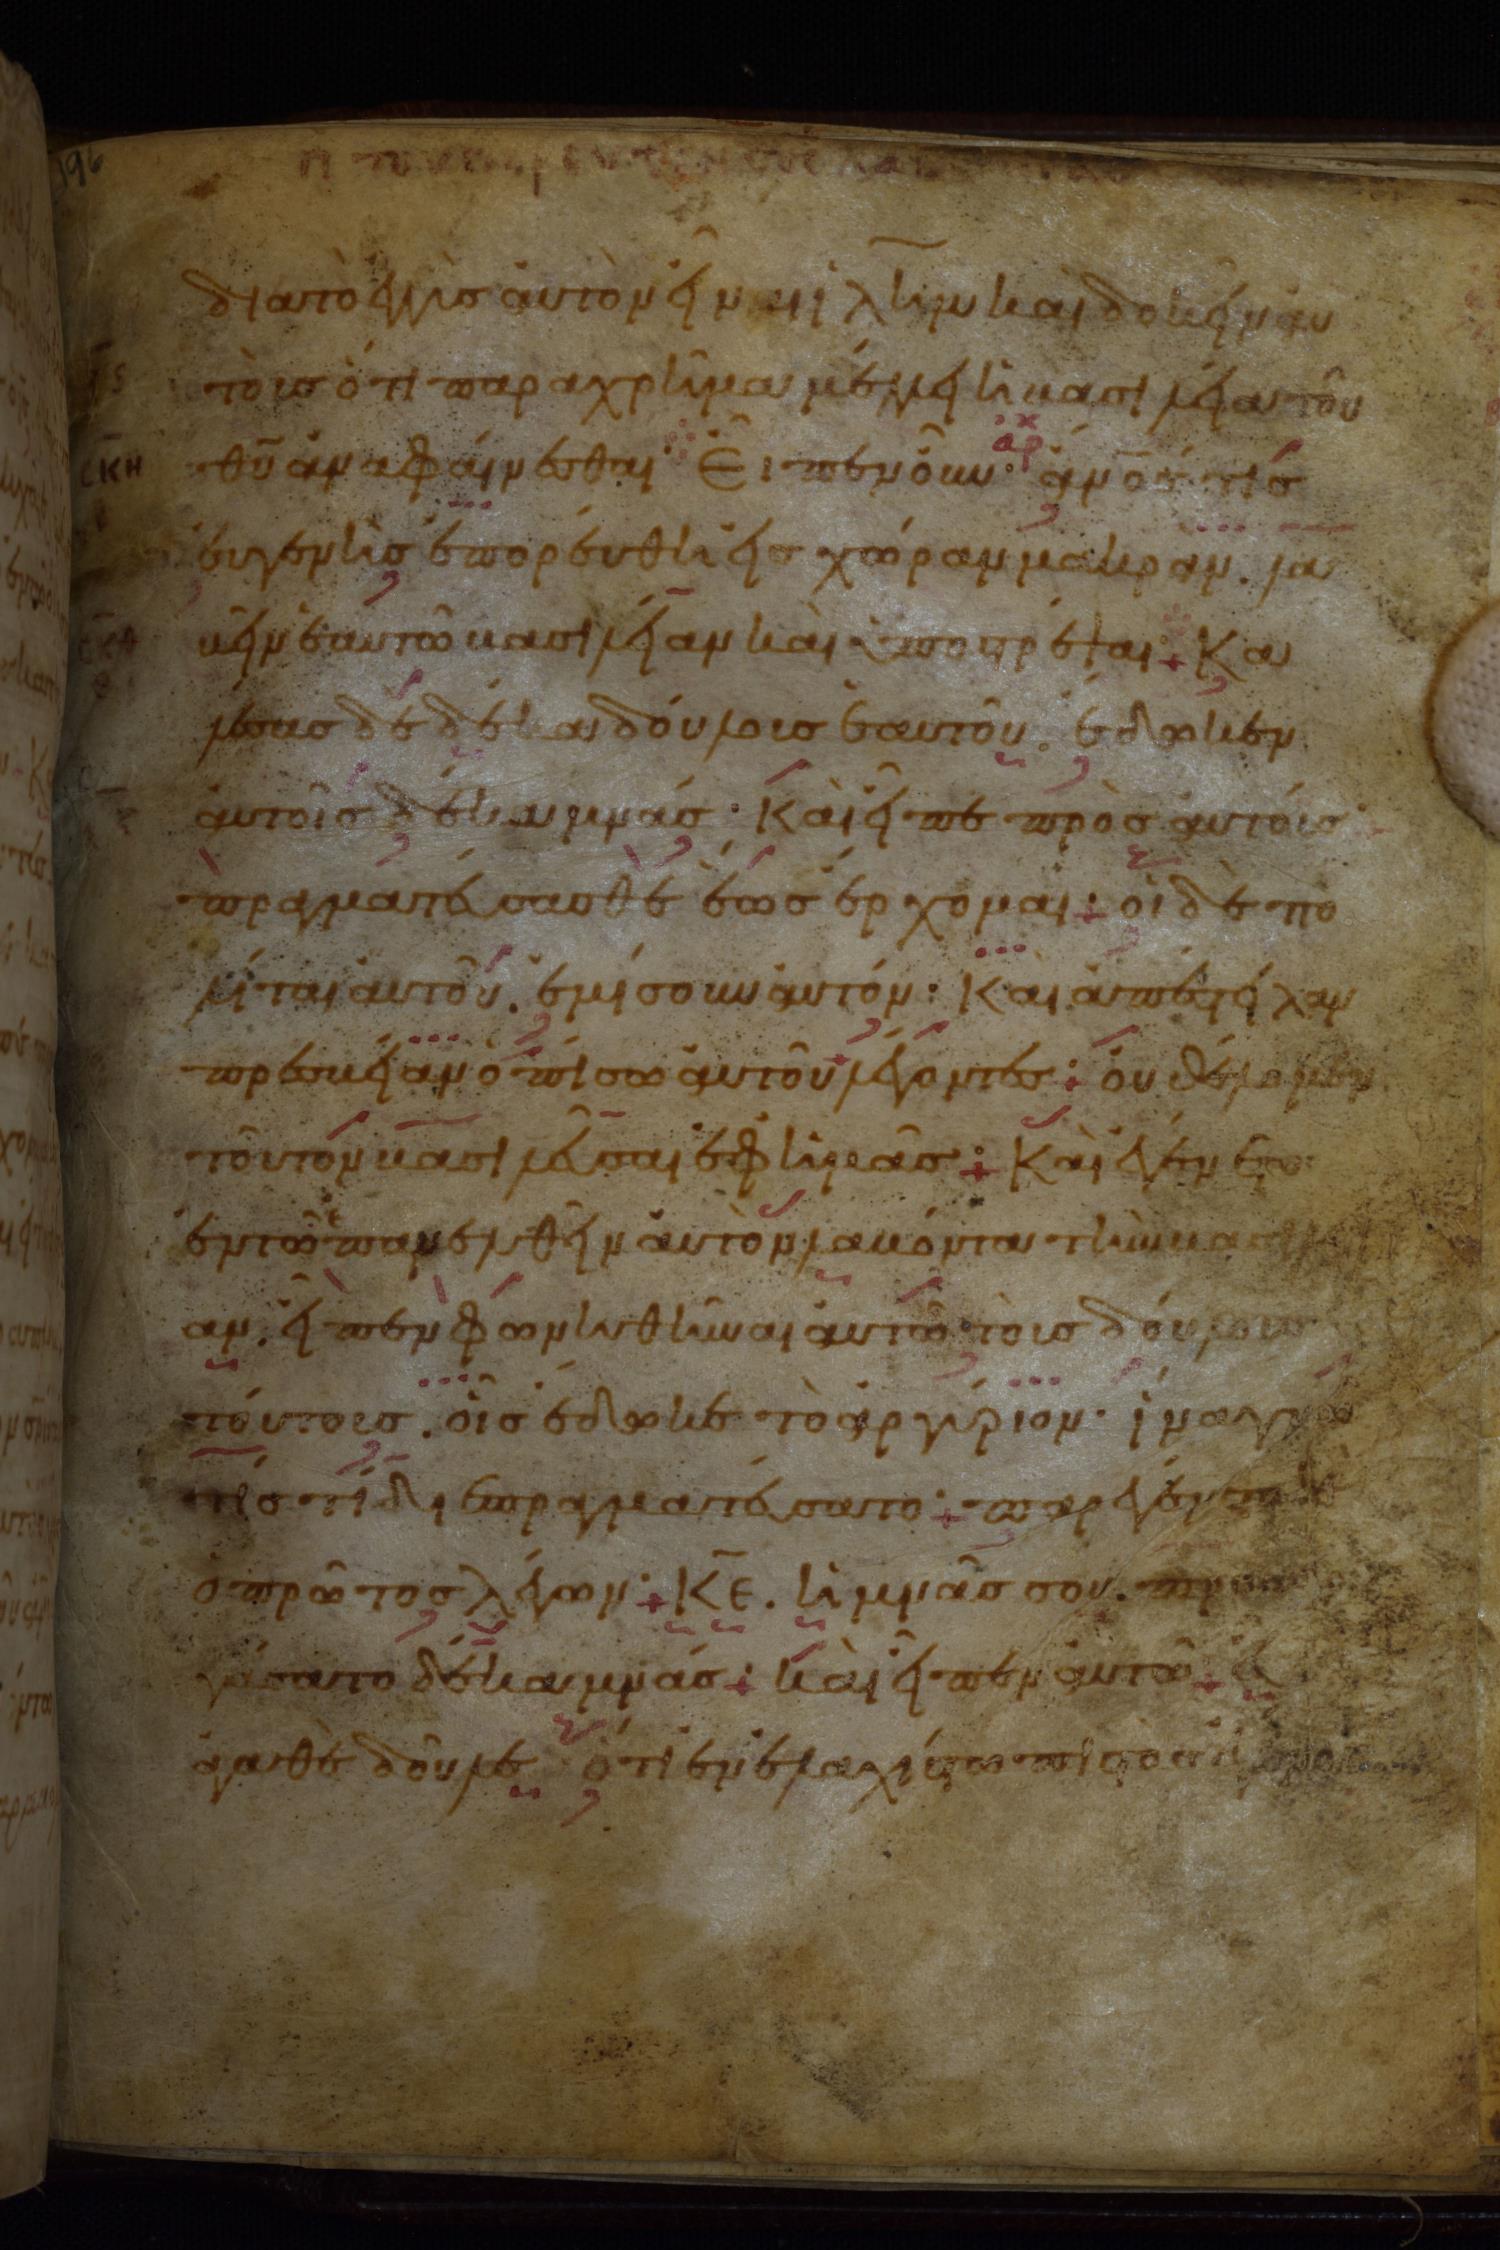 διατὸ ἐγγὺς αὐτὸν εἶναι ἱλῆμ καὶ δοκεῖν αυ
τοὺς ὅτι παραχρῆμα μέλλει ἡ βασιλεία τοῦ
θῡ ἀναφαίνεσθαι· Εἶπεν οὖν· ἄνος τίς
ευγενὴς ἐπορεύθη εἰς χώραν μακραν. λα
βεῖν ἑαυτῶ βασιλείαν καὶ ὑποστρέψαι· Κα
λέσας δὲ δέκα δούλους ἑαυτοῦ. ἔδωκεν
αὐτοῖς δέκα μνάς· Καὶ εἶπε πρὸς αὐτούς
πραγματεύσασθε ἕως ἔρχομαι· οἱ δὲ πο
λίται αὐτοῦ. ἐμίσουν αὐτόν· Καὶ ἀπέστειλαν
πρεσβείαν ὀπίσω αὐτοῦ λέγοντες· οὐ θέλομεν
τοῦτον βασιλεῦσαι ἐφ ἡμᾶς· Καὶ ἐγένετο
ἐν τῶ ἐπανελθεῖν αὐτὸν λαβόντα τὴν βασιλεί
αν. εἶπεν φωνηθῆναι αὐτῶ τοὺς δούλους
τούτους. οἷς ἔδωκε τὸ ἀργύριον· ἵνα γνῶ
τίς τί διεπραγματεύσατο· παρεγένετο δὲ
ὁ πρῶτος λέγων· Κ̅ε̅. ἡ μνᾶ σου. προσειρ
γάσατο δέκα μνάς· καὶ εἶπεν αὐτῶ· εὖ
ἀγαθὲ δοῦλε ὅτι ἐν ἐλαχίστω πιστὸς ἐγένου